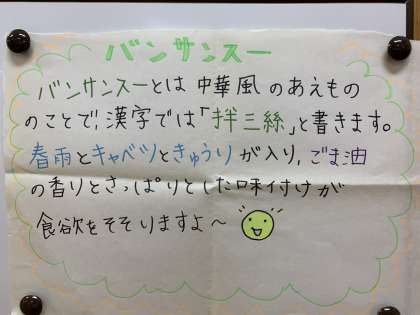 バンサンスー
バンサンスーとは中華風のあえもの
のことで,漢字では「拌三絲」と書きます。
春雨とキャベツときゅうりが入り,ごま油
の香りとさっぱりとした味付けが
食欲をそそりますよ〜